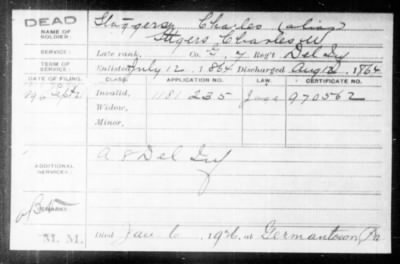 DEAD
NAME OF SOLDIER:
Staggers, Charles (alias)
Stgers, Charles W
SERVICE:
Late rank, Co. G, 7 Reg't Del Inf
TERM OF SERVICE:
Enlisted July 12, 1864 Discharged Aug 12, 1864
DATE OF FILING. CLASS. APPLICATION NO. LAW. CERTIFICATE NO.
Sept Invalid, 1181 235 970562
Widow,
Minor,
ADDITIONAL SERVICES:
A 8 Del Inf
REMARKS:
M. M. Died Jan 6 1926, at Germantown Pa